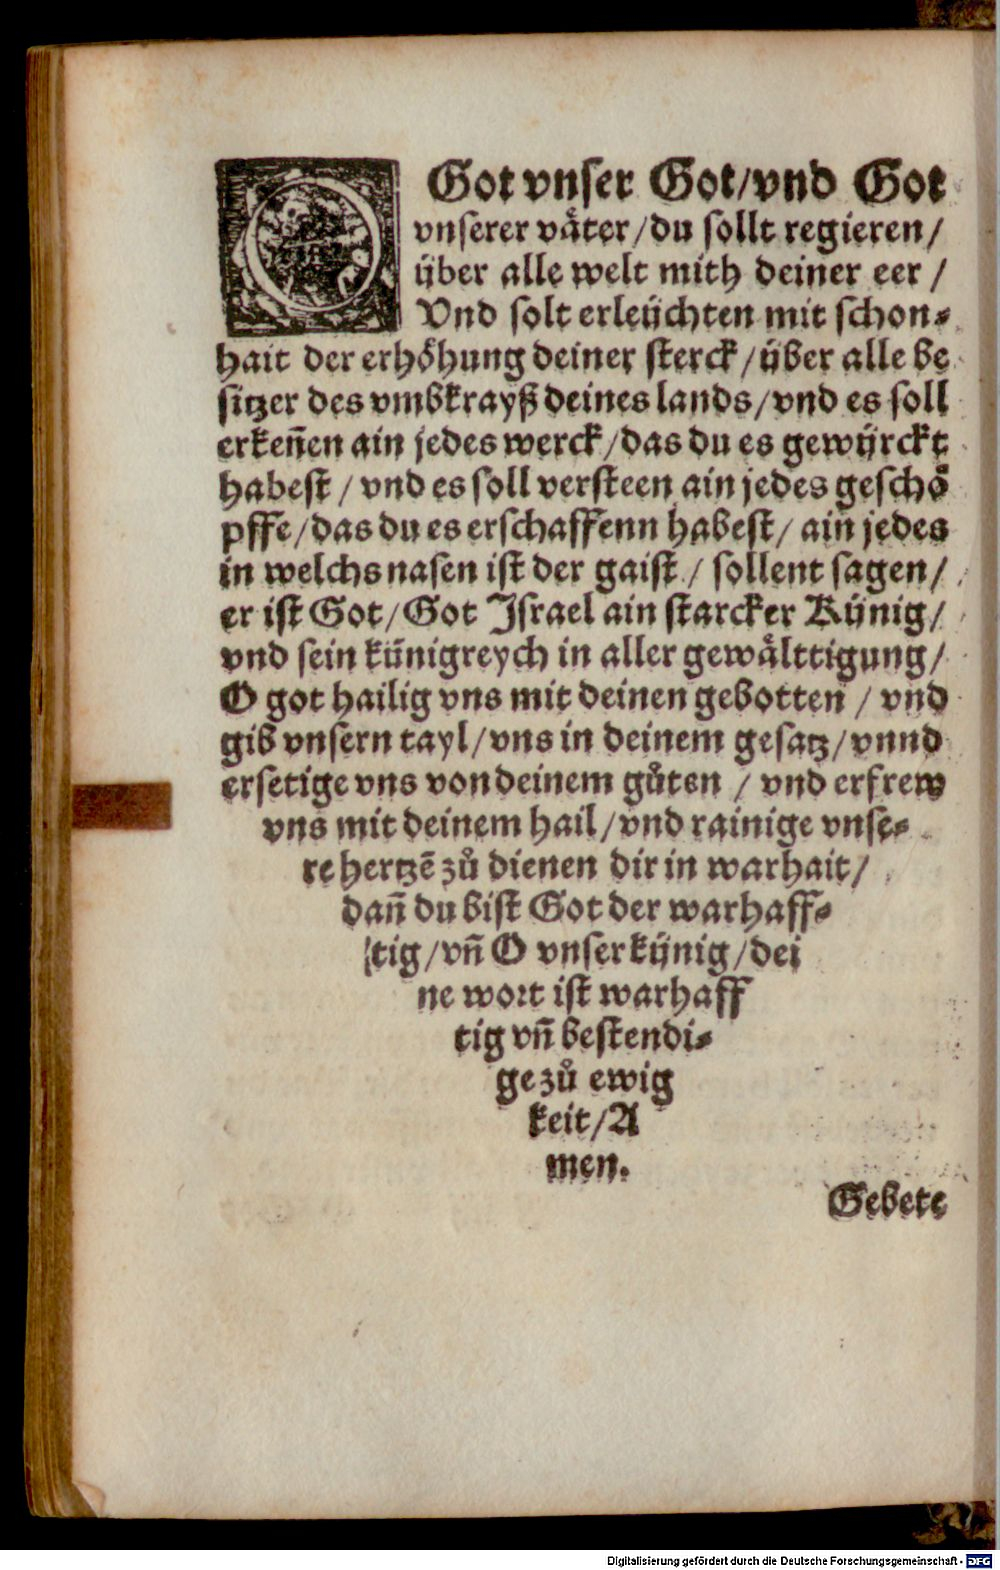 O Got vnser Got/vnd Got
vnserer vaͤter/du sollt regieren/
über alle welt mith deiner eer/
Vnd solt erleüchten mit schon⸗
hait der erhoͤhung deiner sterck/über alle be
sitzer des vmbkrayß deines lands/vnd es soll
erkeñen ain jedes werck/das du es gewürckt
habest/vnd es soll versteen ain jedes geschoͤ
pffe/das du es erschaffenn habest/ain jedes
in welchs nasen ist der gaist/sollent sagen/
er ist Got/Got Israel ain starcker Künig/
vnd sein künigreych in aller gewaͤlttigung/
O got hailig vns mit deinen gebotten/vnd
gib vnsern tayl/vns in deinem gesatz/vnnd
ersetige vns von deinem guͤten/vnd erfrew
vns mit deinem hail/vnd rainige vnse⸗
re hertzē zů dienen dir in warhait/
dañ du bist Got der warhaff⸗
tig/vñ O vnser künig/dei
ne wort ist warhaff
tig vñ bestendi⸗
ge zů ewig
keit/A
men.
Gebete
Digitalisierung gefördert durch die Deutsche Forschungsgemeinschaft - DFG